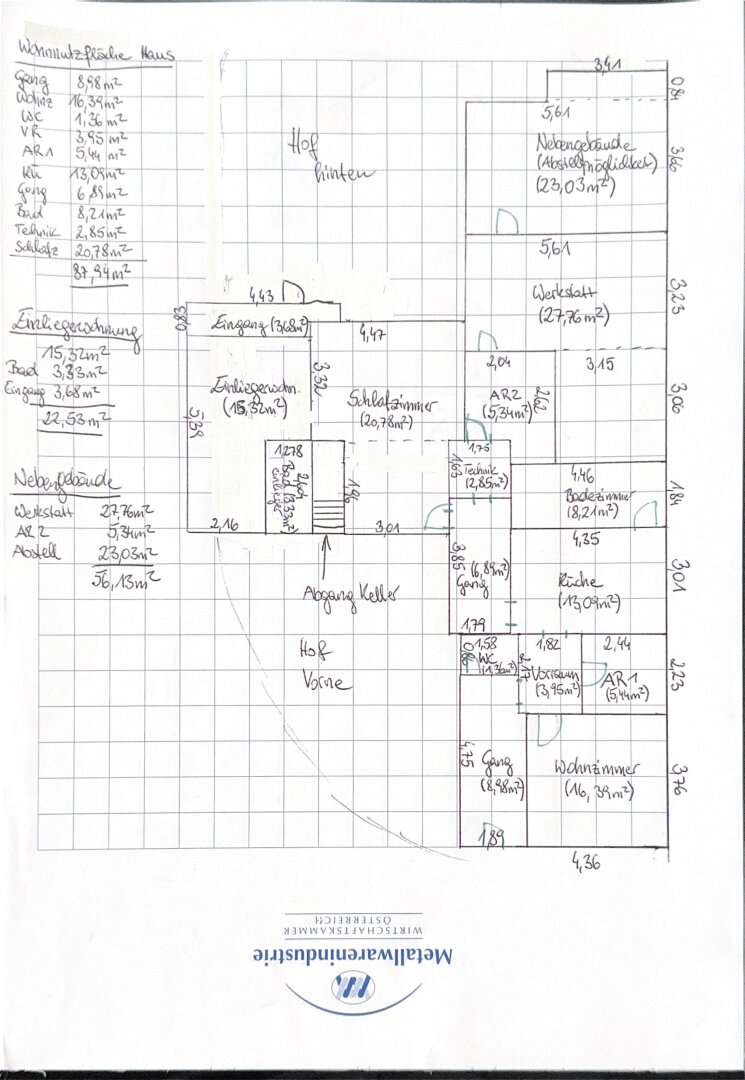 Wohnnutzfläche Haus
Gang 8,98m²
Wohnz 16,39m²
WC 1,36m²
VR 3,95m²
AR1 5,44m²
Kü 13,09m²
Gang 6,89m²
Bad 8,21m²
Technik 2,85m²
Schlafz 20,78m²
87,94m²
Einliegerwohnung
15,32m²
Bad 3,33m²
Eingang 3,68m²
22,53m²
Nebengebäude
Werkstatt 27,76m²
AR2 5,34m²
Abstell 23,03m²
56,13m²
Hof
hinten
3,41
0,84
5,61
Nebengebäude
(Abstellmöglichkeit)
(23,03m²)
3,66
5,61
Werkstatt
(27,76m²)
3,23
4,43
0,83
Eingang (3,68m²)
4,47
2,04
3,15
3,32
AR2
(5,34m²)
2,62
3,06
Einliegerwohn.
(15,32m²)
5,39
Schlafzimmer
(20,78m²)
1,75
1,278
Bad (3,33m²)
einlieger
1,94
1,63
Technik
(2,85m²)
4,46
Badezimmer
(8,21m²)
1,84
2,16
3,01
4,35
Abgang Keller
3,85
Gang
(6,89m²)
Küche
(13,09m²)
3,01
1,79
Hof
Vorne
1,58
0,86
WC
(1,36m²)
1,82
2,17
Vorraum
(3,95m²)
2,44
AR1
(5,44m²)
2,23
4,75
Gang
(8,98m²)
Wohnzimmer
(16,39m²)
3,76
1,89
4,36
WIRTSCHAFTSKAMMER
ÖSTERREICH
Metallwarenindustrie